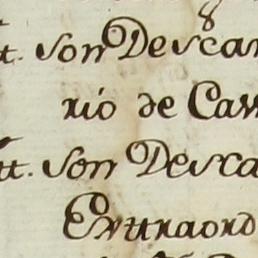 tt. Son Descar
rio de Cav
tt. Son Desca
Extraord